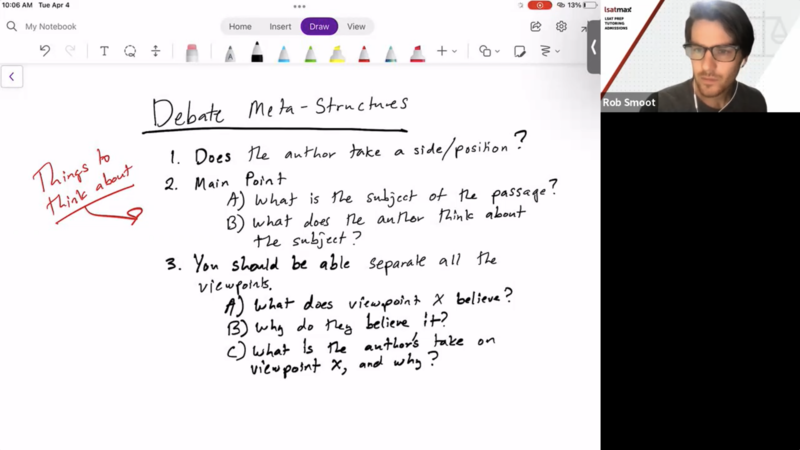 10:06 AM Tue Apr 4
13%
My Notebook
Home Insert Draw View
lsatmax
LSAT PREP
TUTORING
ADMISSIONS
Rob Smoot
Debate Meta-Structures
Things to
think about
1. Does the author take a side/position?
2. Main Point
A) What is the subject of the passage?
B) What does the author think about
the subject?
3. You should be able separate all the
viewpoints.
A) What does viewpoint X believe?
B) Why do they believe it?
C) What is the author's take on
viewpoint X, and why?